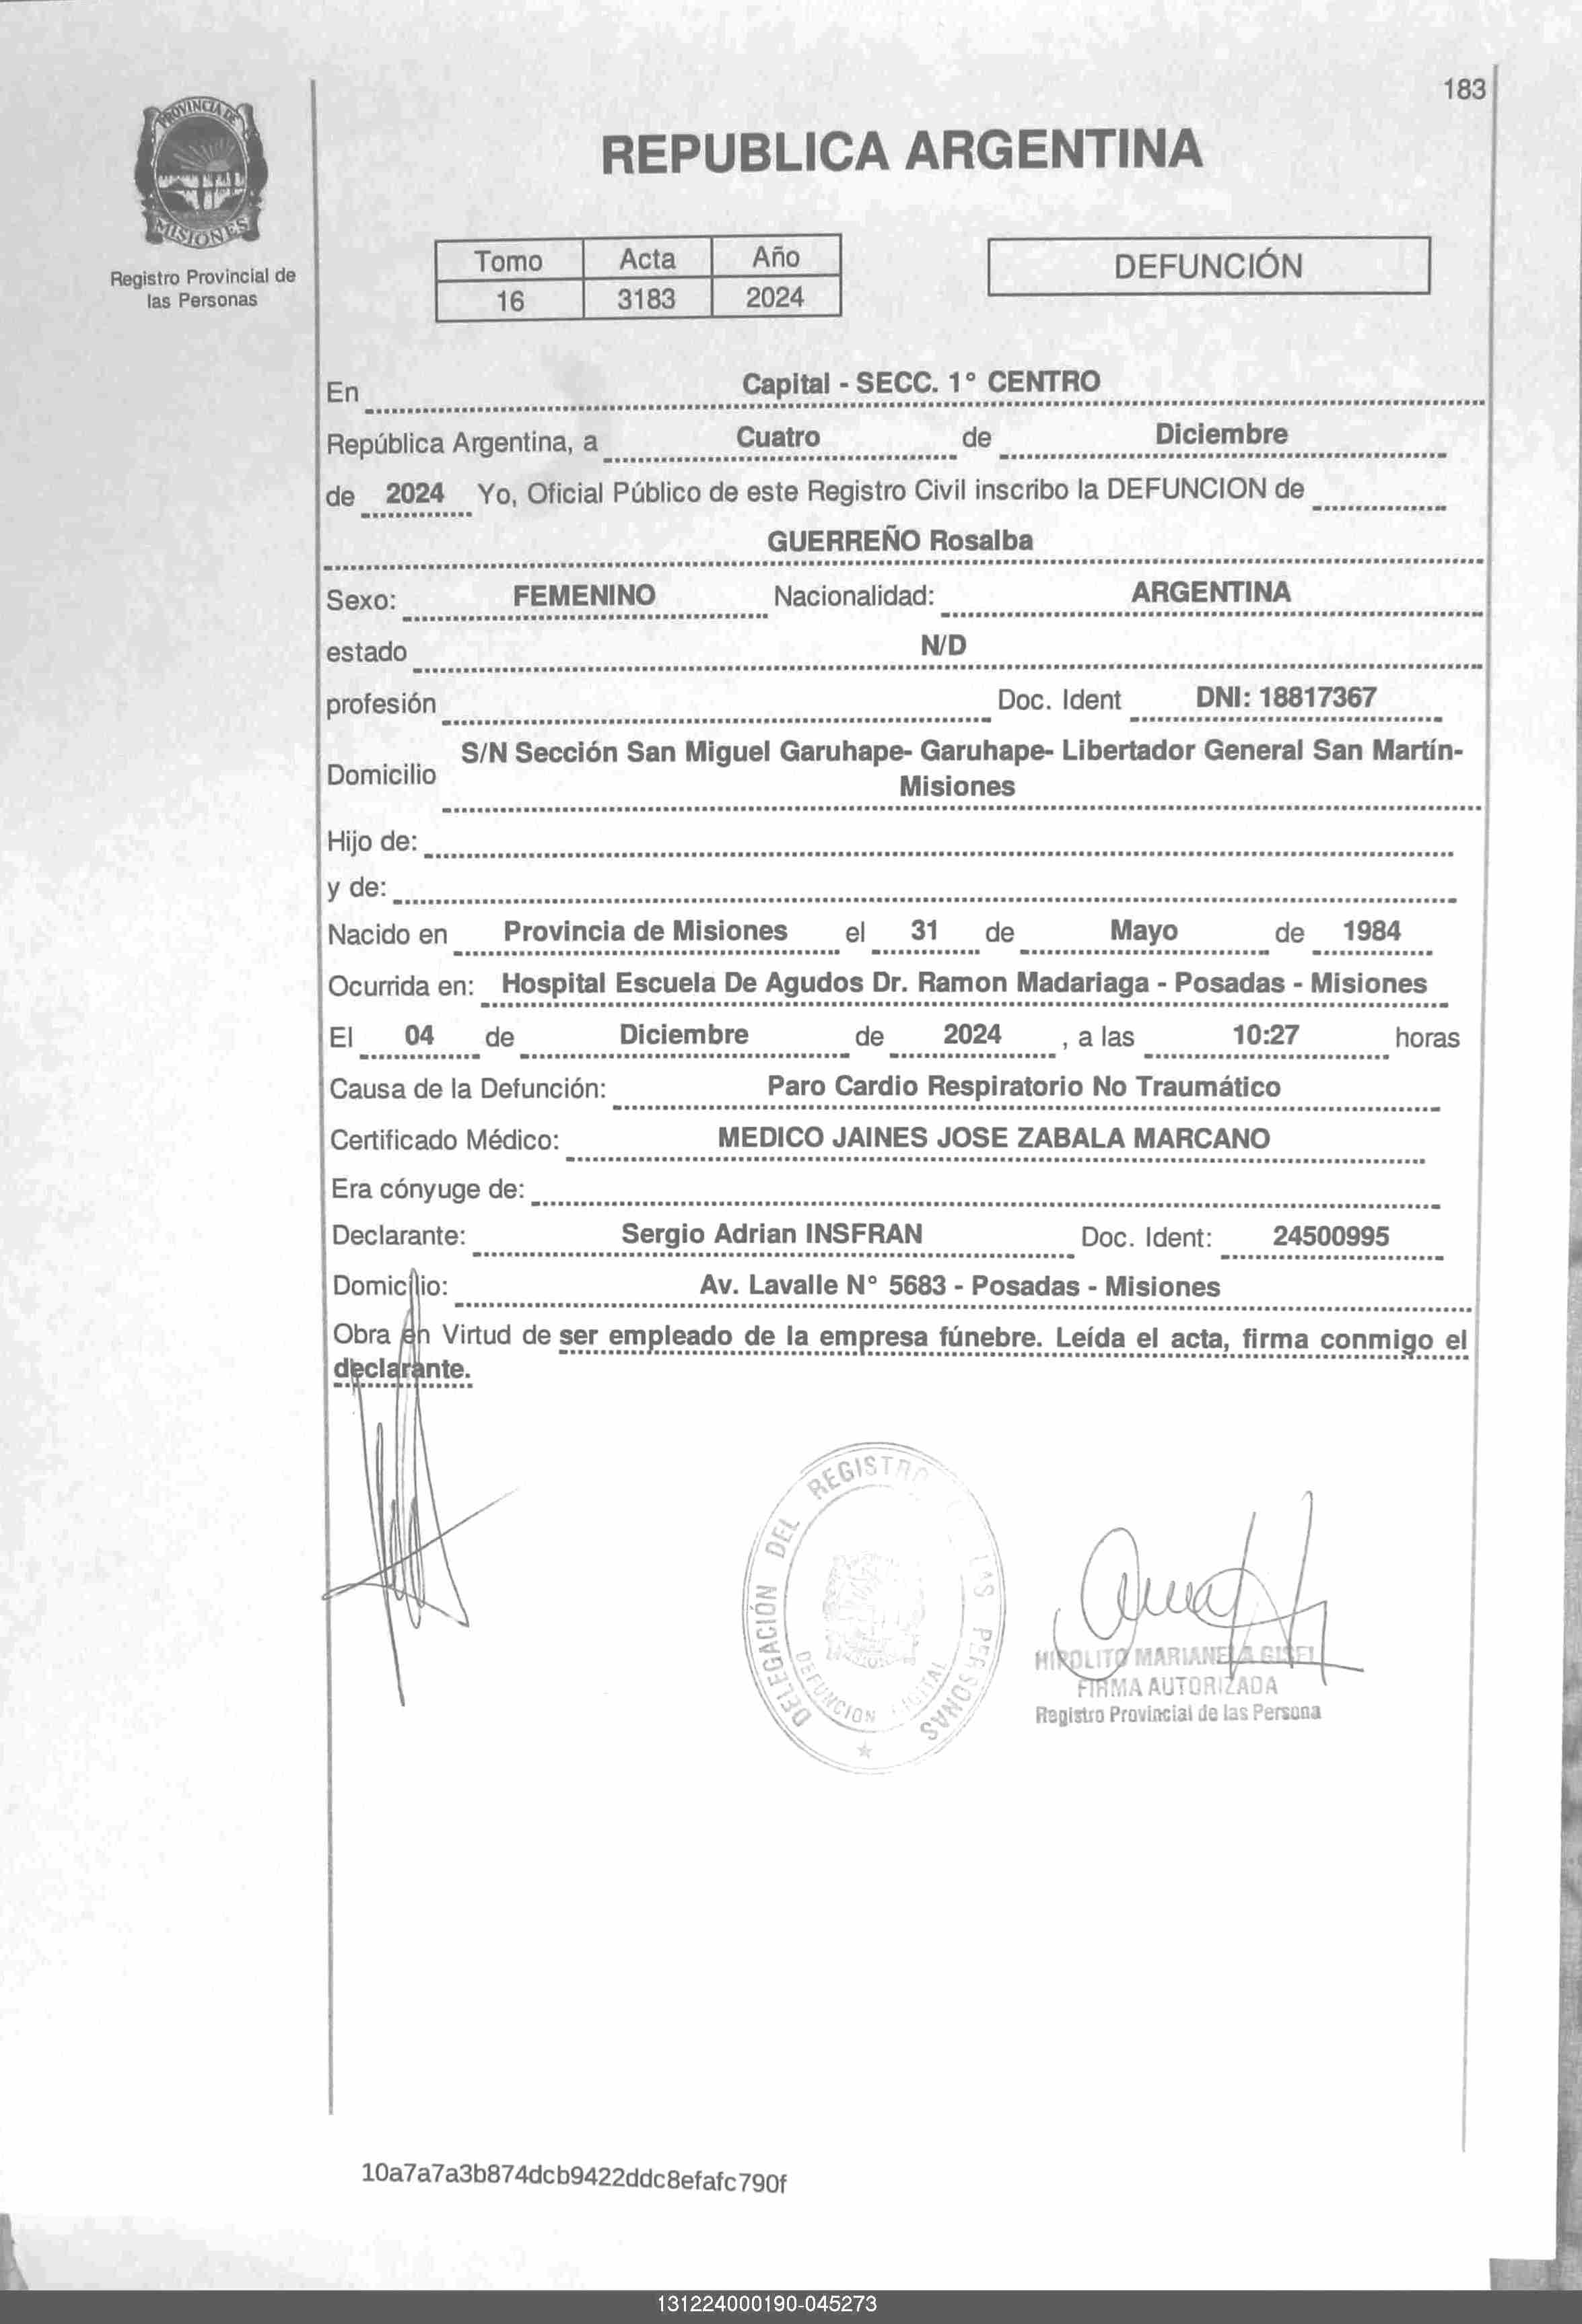 183
PROVINCIA DE
MISIONES
Registro Provincial de
las Personas
REPUBLICA ARGENTINA
Tomo Acta Año
16 3183 2024
DEFUNCIÓN
En Capital - SECC. 1° CENTRO
República Argentina, a Cuatro de Diciembre
de 2024 Yo, Oficial Público de este Registro Civil inscribo la DEFUNCION de
GUERREÑO Rosalba
Sexo: FEMENINO Nacionalidad: ARGENTINA
estado N/D
profesión Doc. Ident DNI: 18817367
Domicilio S/N Sección San Miguel Garuhape- Garuhape- Libertador General San Martín-
Misiones
Hijo de:
y de:
Nacido en Provincia de Misiones el 31 de Mayo de 1984
Ocurrida en: Hospital Escuela De Agudos Dr. Ramon Madariaga - Posadas - Misiones
El 04 de Diciembre de 2024 , a las 10:27 horas
Causa de la Defunción: Paro Cardio Respiratorio No Traumático
Certificado Médico: MEDICO JAINES JOSE ZABALA MARCANO
Era cónyuge de:
Declarante: Sergio Adrian INSFRAN Doc. Ident: 24500995
Domicilio: Av. Lavalle N° 5683 - Posadas - Misiones
Obra en Virtud de ser empleado de la empresa fúnebre. Leída el acta, firma conmigo el
declarante.
DELEGACIÓN DEL REGISTRO LAS PERSONAS
DEFUNCION DIGITAL
HIPOLITO MARIANELA GISEL
FIRMA AUTORIZADA
Registro Provincial de las Persona
10a7a7a3b874dcb9422ddc8efafc790f
131224000190-045273